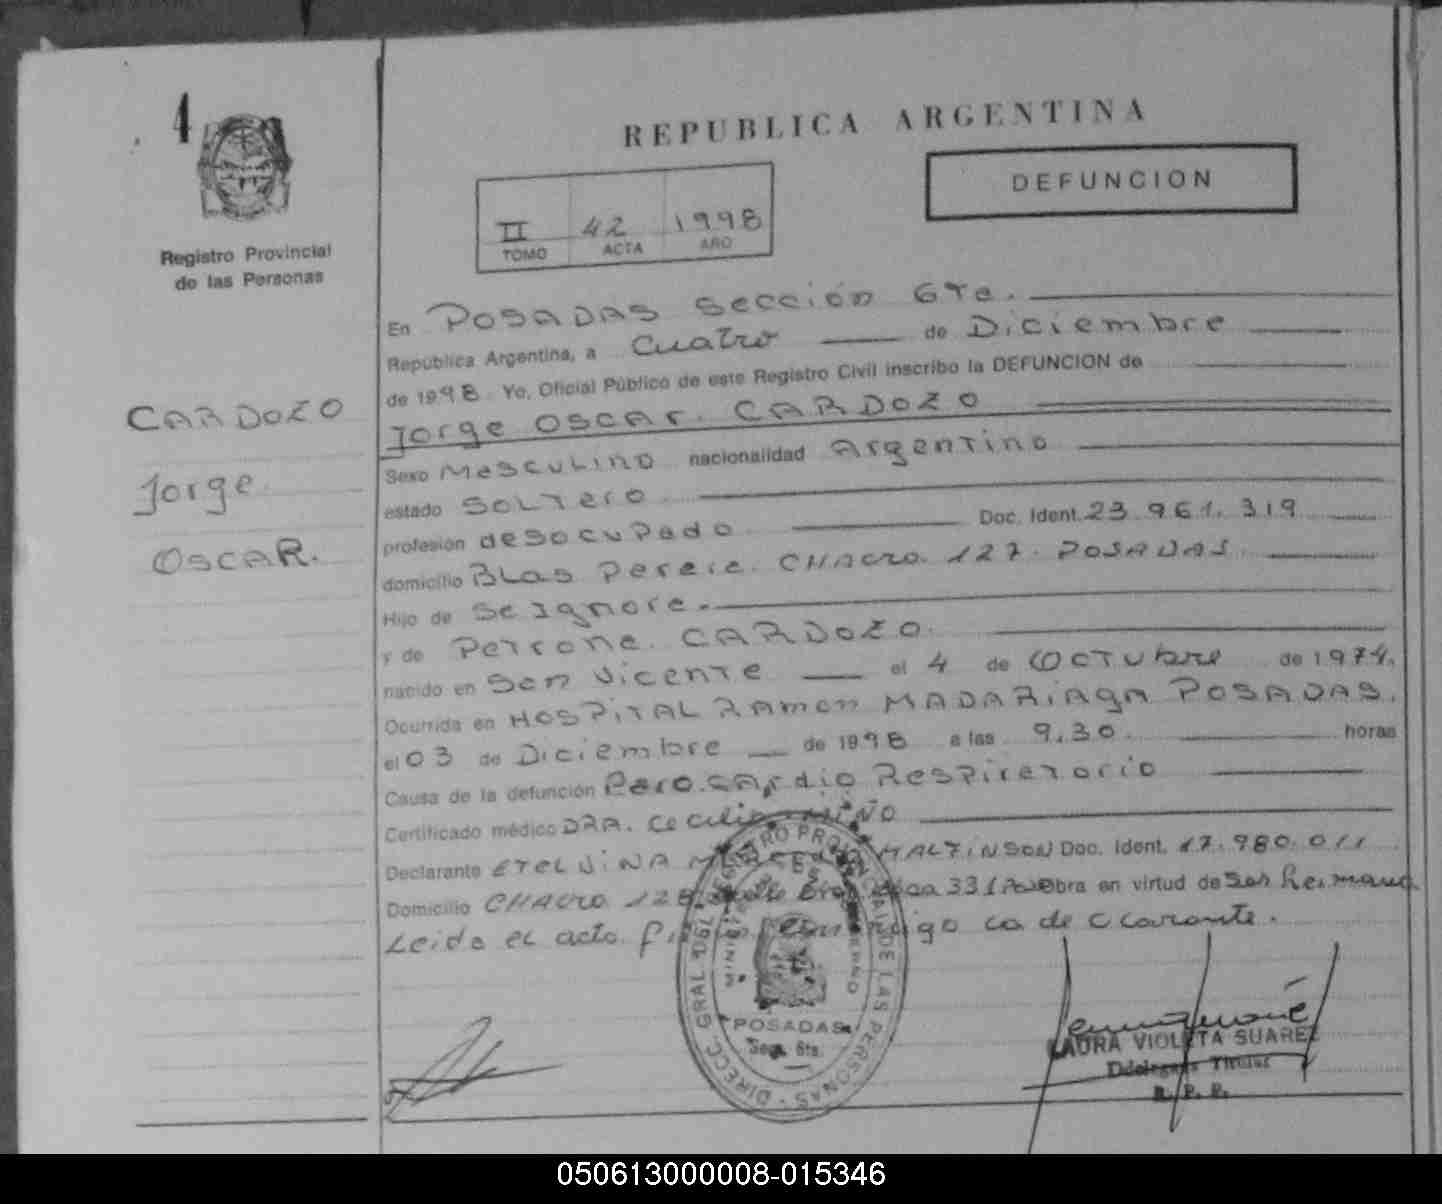 4
REPUBLICA ARGENTINA
DEFUNCION
II 42 1998
TOMO ACTA AÑO
Registro Provincial
de las Personas
CARDOZO
Jorge
OSCAR.
En POSADAS Sección 6Ta.
República Argentina, a Cuatro de Diciembre
de 1998. Yo, Oficial Público de este Registro Civil inscribo la DEFUNCION de
Jorge OSCAr. CARDOZO
Sexo MasculiNO nacionalidad ArgenTino
estado SOLTero
profesión desocupado Doc. Ident. 23.961.319
domicilio BLas Pereia. CHACra. 127. POSADAS
Hijo de Se Ignora.
y de Petrona. CARDOZO.
nacido en San Vicente el 4 de OCTubre de 1974.
Ocurrida en HOSPITAL RAmon MADARiAgA POSADAS.
el 03 de Diciembre de 1998 a las 9.30. horas
Causa de la defunción Paro.CArdio RespiraTorio
Certificado médico DRA. Cecilia MIÑO
Declarante ETELVINA HALTINSON Doc. Ident. 17.980.011
Domicilio CHAcra 128 331 Pos Obra en virtud de Ser hermana
Leida el acta. conmigo la declarante.
DIRECC. GRAL. DEL REGISTRO PROVINCIAL DE LAS PERSONAS
POSADAS
Secc. 6ta.
LAURA VIOLETA SUAREZ
Delegada Titular
R. P. P.
050613000008-015346